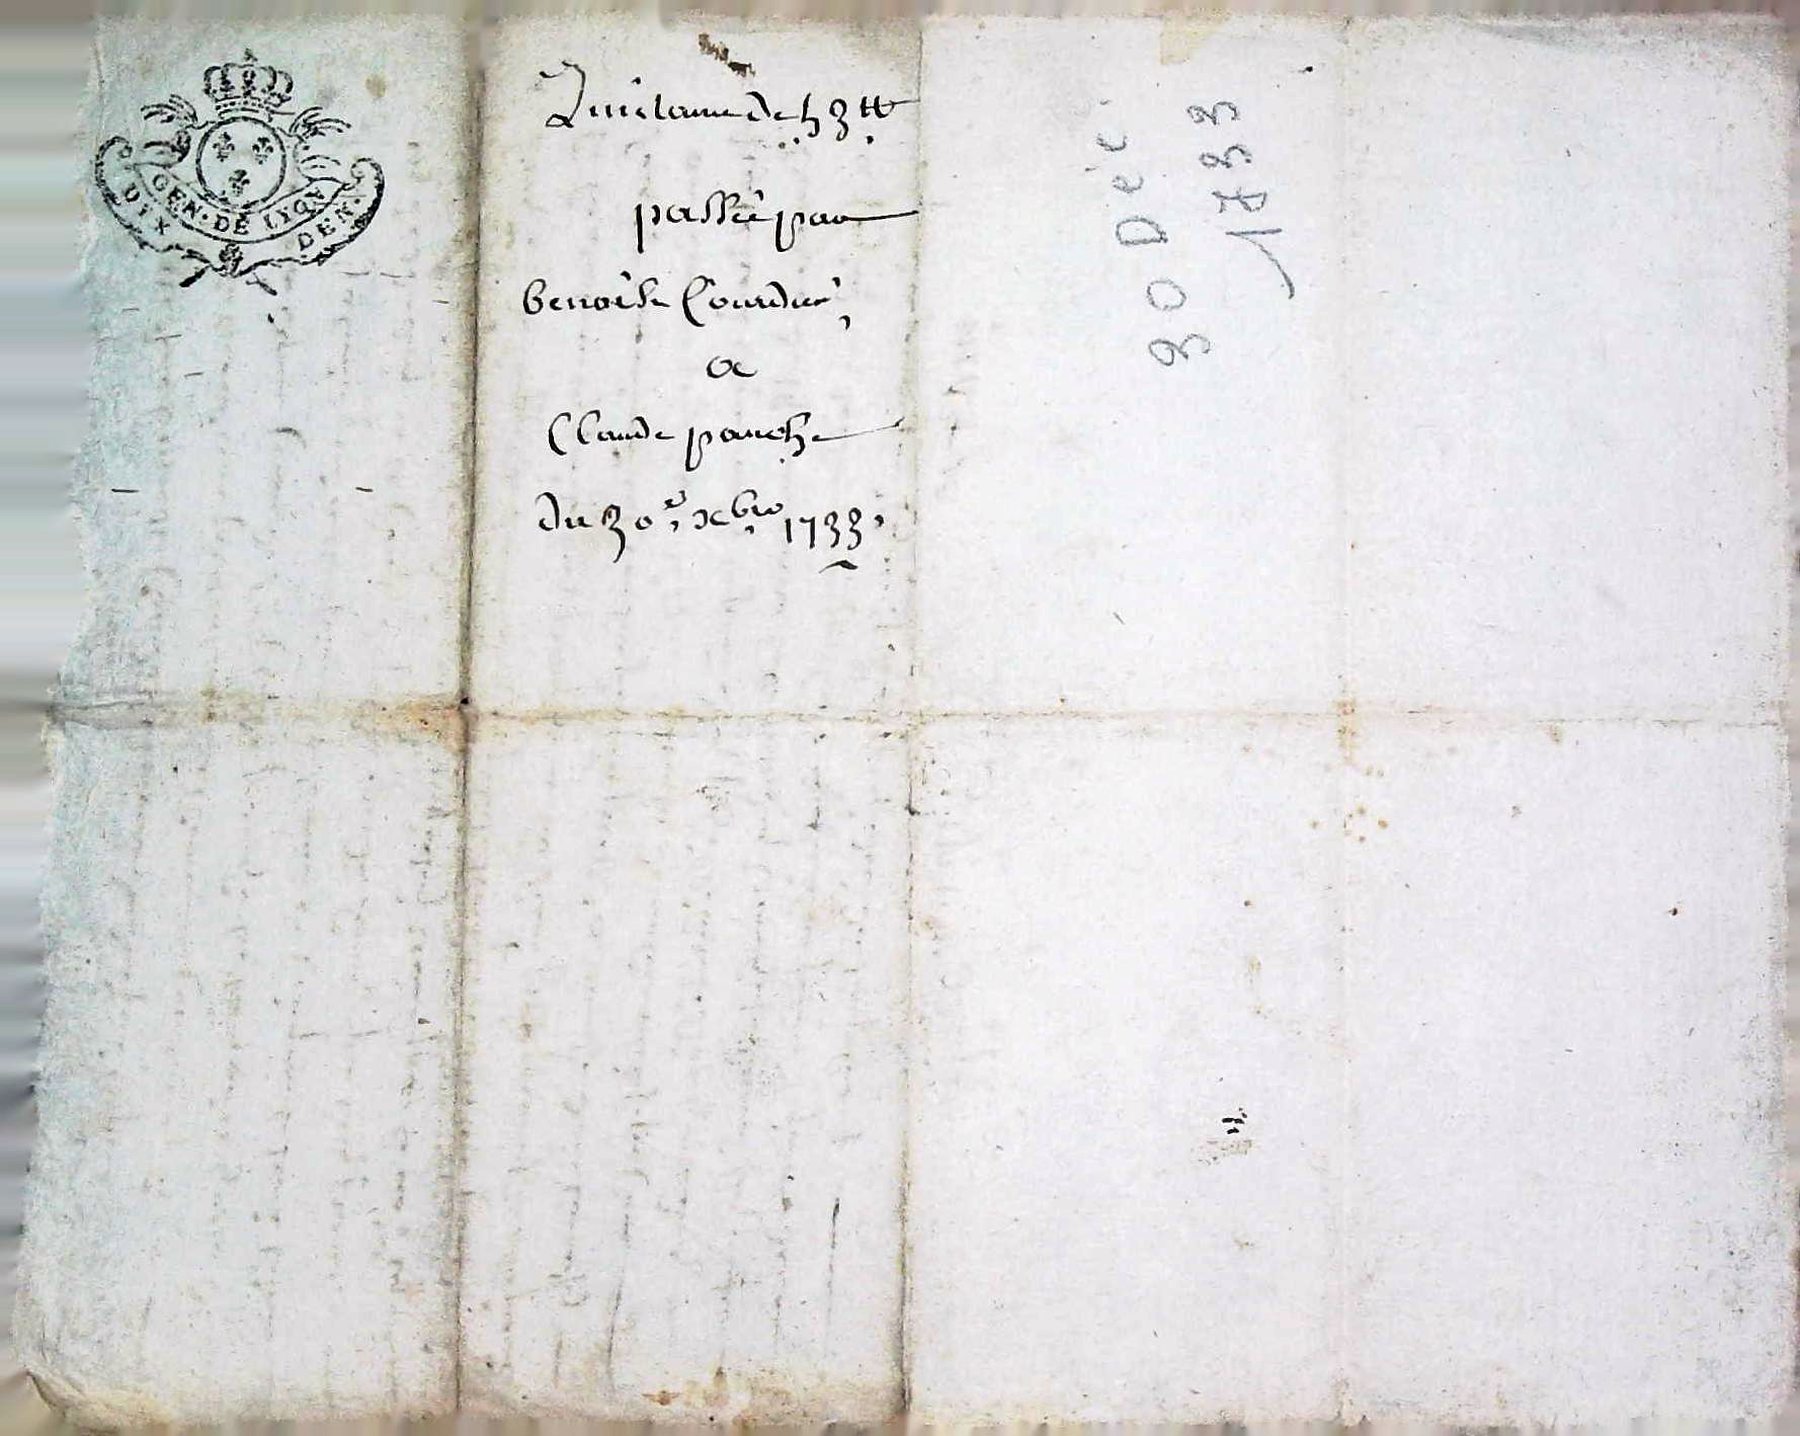 GEN. DE LYON
DIX DEN.
Quictance de 53 tt
passée par
benoiste Courdier
A
Claude panche
du 30e xbre 1733
30 Déc
1733